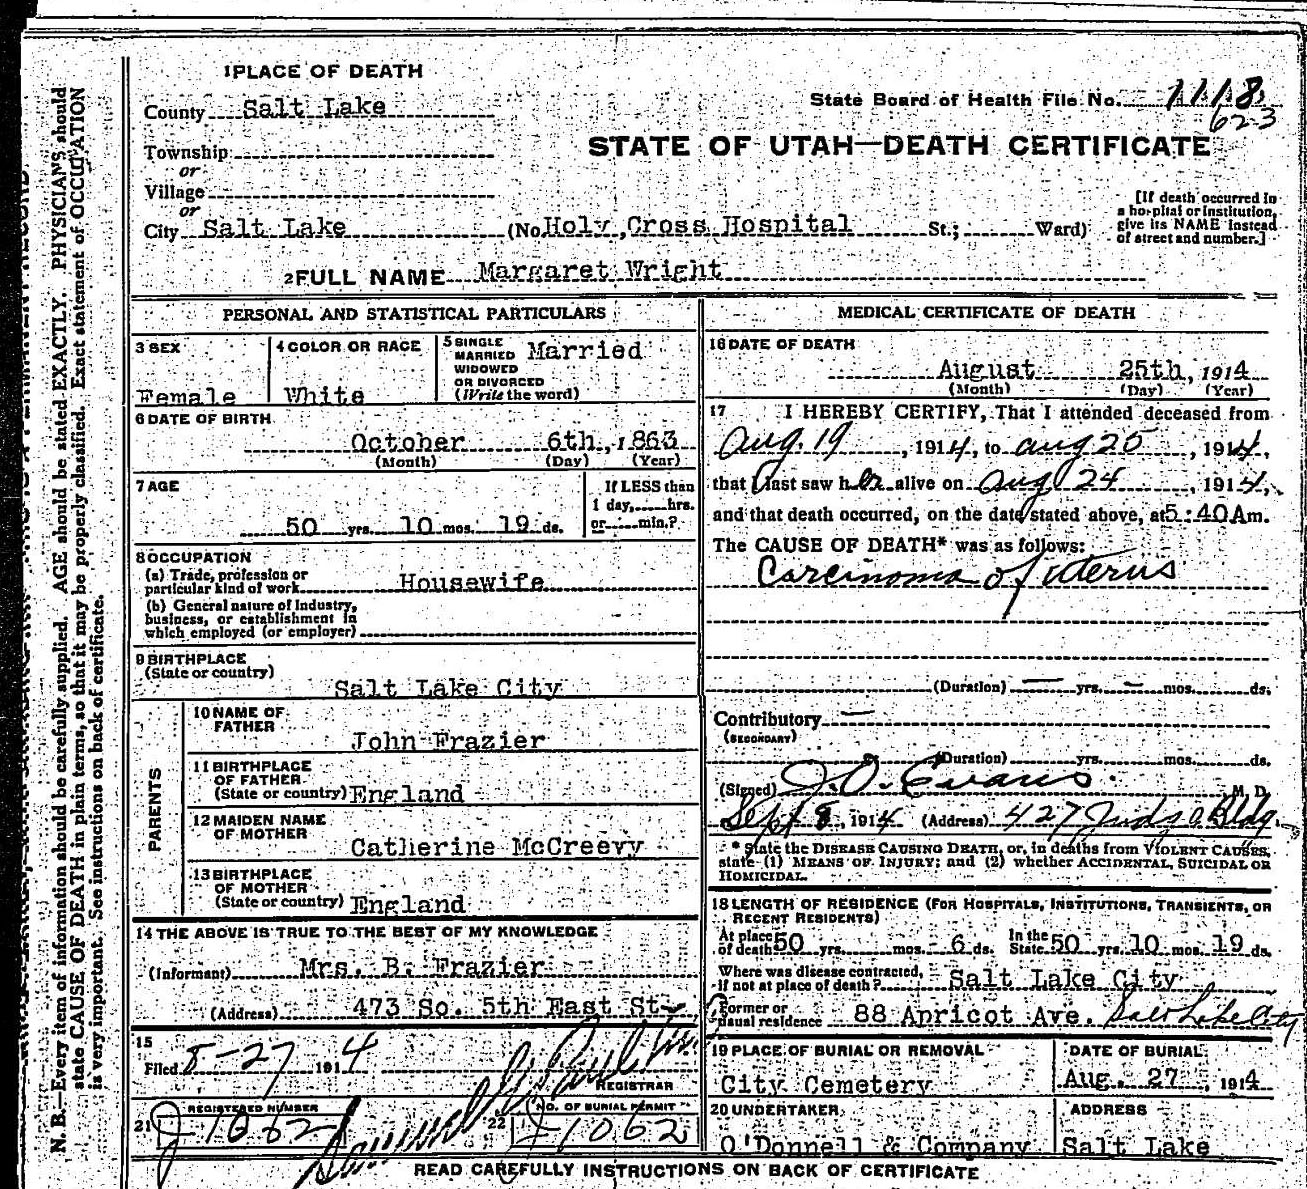 1 PLACE OF DEATH
County Salt Lake
State Board of Health File No. 1118
623
Township
or
Village
or
STATE OF UTAH—DEATH CERTIFICATE
City Salt Lake (No. Holy Cross Hospital St.; Ward)
[If death occurred in
a hospital or institution,
give its NAME instead
of street and number.]
2 FULL NAME Margaret Wright
PERSONAL AND STATISTICAL PARTICULARS
3 SEX
Female
4 COLOR OR RACE
White
5 SINGLE
MARRIED
WIDOWED
OR DIVORCED
(Write the word)
Married
6 DATE OF BIRTH
October 6th, 1863
(Month) (Day) (Year)
7 AGE
50 yrs. 10 mos. 19 ds.
If LESS than
1 day, hrs.
or min.?
8 OCCUPATION
(a) Trade, profession or
particular kind of work Housewife
(b) General nature of Industry,
business, or establishment in
which employed (or employer)
9 BIRTHPLACE
(State or country)
Salt Lake City
PARENTS
10 NAME OF
FATHER
John Frazier
11 BIRTHPLACE
OF FATHER
(State or country) England
12 MAIDEN NAME
OF MOTHER
Catherine McCreevy
13 BIRTHPLACE
OF MOTHER
(State or country) England
14 THE ABOVE IS TRUE TO THE BEST OF MY KNOWLEDGE
(Informant) Mrs. B. Frazier
(Address) 473 So. 5th East St
15
Filed 8-27 1914
REGISTRAR
21 REGISTERED NUMBER
J 1062
22 NO. OF BURIAL PERMIT
J 1062
MEDICAL CERTIFICATE OF DEATH
16 DATE OF DEATH
August 25th, 1914
(Month) (Day) (Year)
17 I HEREBY CERTIFY, That I attended deceased from
Aug. 19, 1914, to Aug 25, 1914,
that I last saw her alive on Aug 24, 1914,
and that death occurred, on the date stated above, at 5:40 Am.
The CAUSE OF DEATH* was as follows:
Carcinoma of uterus
(Duration) — yrs. — mos. ds.
Contributory —
(SECONDARY)
(Duration) yrs. mos. ds.
(Signed) J. O. Evans M. D.
Sept 8, 1914 (Address) 427 Judge Bldg.
* State the DISEASE CAUSING DEATH, or, in deaths from VIOLENT CAUSES,
state (1) MEANS OF INJURY; and (2) whether ACCIDENTAL, SUICIDAL OR
HOMICIDAL.
18 LENGTH OF RESIDENCE (FOR HOSPITALS, INSTITUTIONS, TRANSIENTS, OR
RECENT RESIDENTS)
At place of death 50 yrs. mos. 6 ds. In the State 50 yrs. 10 mos. 19 ds.
Where was disease contracted,
if not at place of death? Salt Lake City
Former or
usual residence 88 Apricot Ave. Salt Lake City
19 PLACE OF BURIAL OR REMOVAL
City Cemetery
DATE OF BURIAL
Aug. 27, 1914
20 UNDERTAKER
O'Donnell & Company
ADDRESS
Salt Lake
READ CAREFULLY INSTRUCTIONS ON BACK OF CERTIFICATE
N. B.—Every item of information should be carefully supplied. AGE should be stated EXACTLY. PHYSICIANS should
state CAUSE OF DEATH in plain terms, so that it may be properly classified. Exact statement of OCCUPATION
is very important. See instructions on back of certificate.